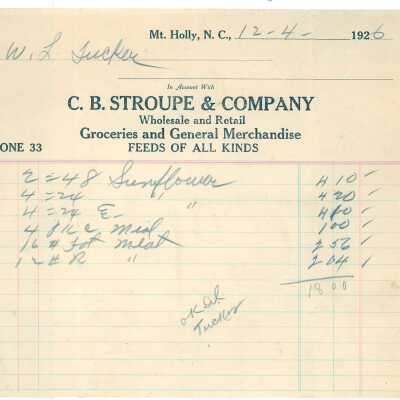 Mt. Holly, N. C., 12-4- 1926
W. L Tucker
In Account With
C. B. STROUPE & COMPANY
Wholesale and Retail
Groceries and General Merchandise
ONE 33 FEEDS OF ALL KINDS
2 = 48 Sunflower 410
4 = 24 " " 420
4 = 24 E- 400
4 Meal 100
16 # Fat Meat 256
12 # R " 204
1800
OK
Tucker